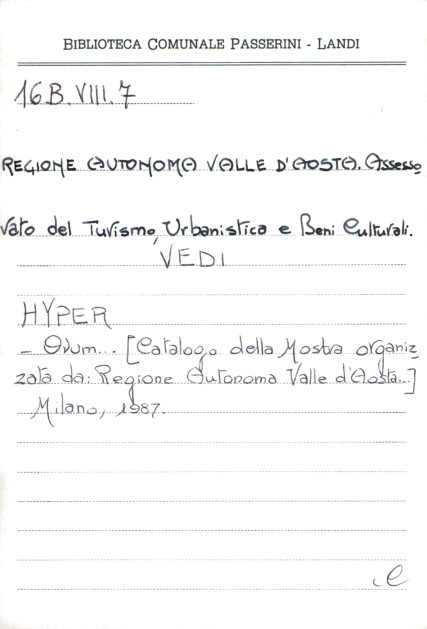 BIBLIOTECA COMUNALE PASSERINI - LANDI
16B.VIII.7
REGIONE AUTONOMA VALLE D'AOSTA. Assesso
rato del Turismo, Urbanistica e Beni Culturali.
VEDI
HYPER
- Ovum... [Catalogo della Mostra organiz
zata da: Regione Autonoma Valle d'Aosta...]
Milano, 1987.
e